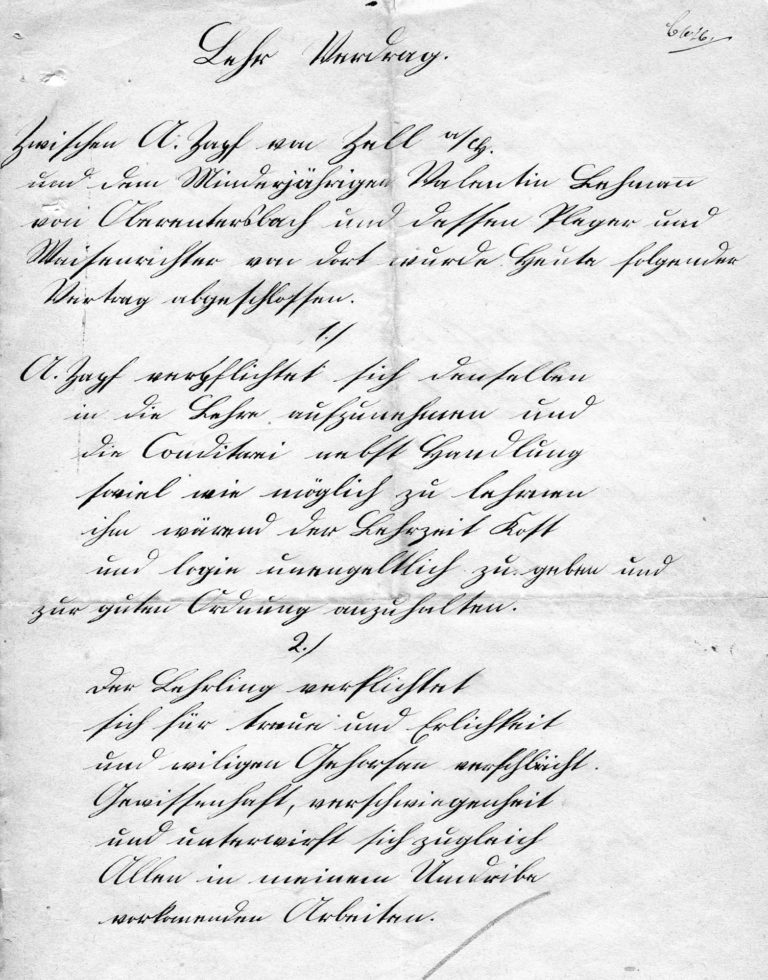 Lehr Verdrag.
Zwischen A. Zapf von Zell a/H.
und dem Minderjährigen Valentin Lehmann
von Oberentersbach und dessen Pleger und
Waisenrichter von dort wurde Heute folgender
Vertrag abgeschlossen.
1./
A. Zapf verpflichtet sich denselben
in die Lehre aufzunehmen und
die Conditrei nebst Handlung
soviel wie möglich zu lehrnen
ihm wärend der Lehrzeit Kost
und logie unengeltlich zu geben und
zur guten Ordnung anzuhalten.
2./
Der Lehrling verflichtet
sich für treue und Erlichkeit
und wiligen Gehorsan
Gewissenhaft, verschwiegenheit
und unterwirft sich zugleich
Allen in meinem Umdribe
vorkomenden Arbeiten.